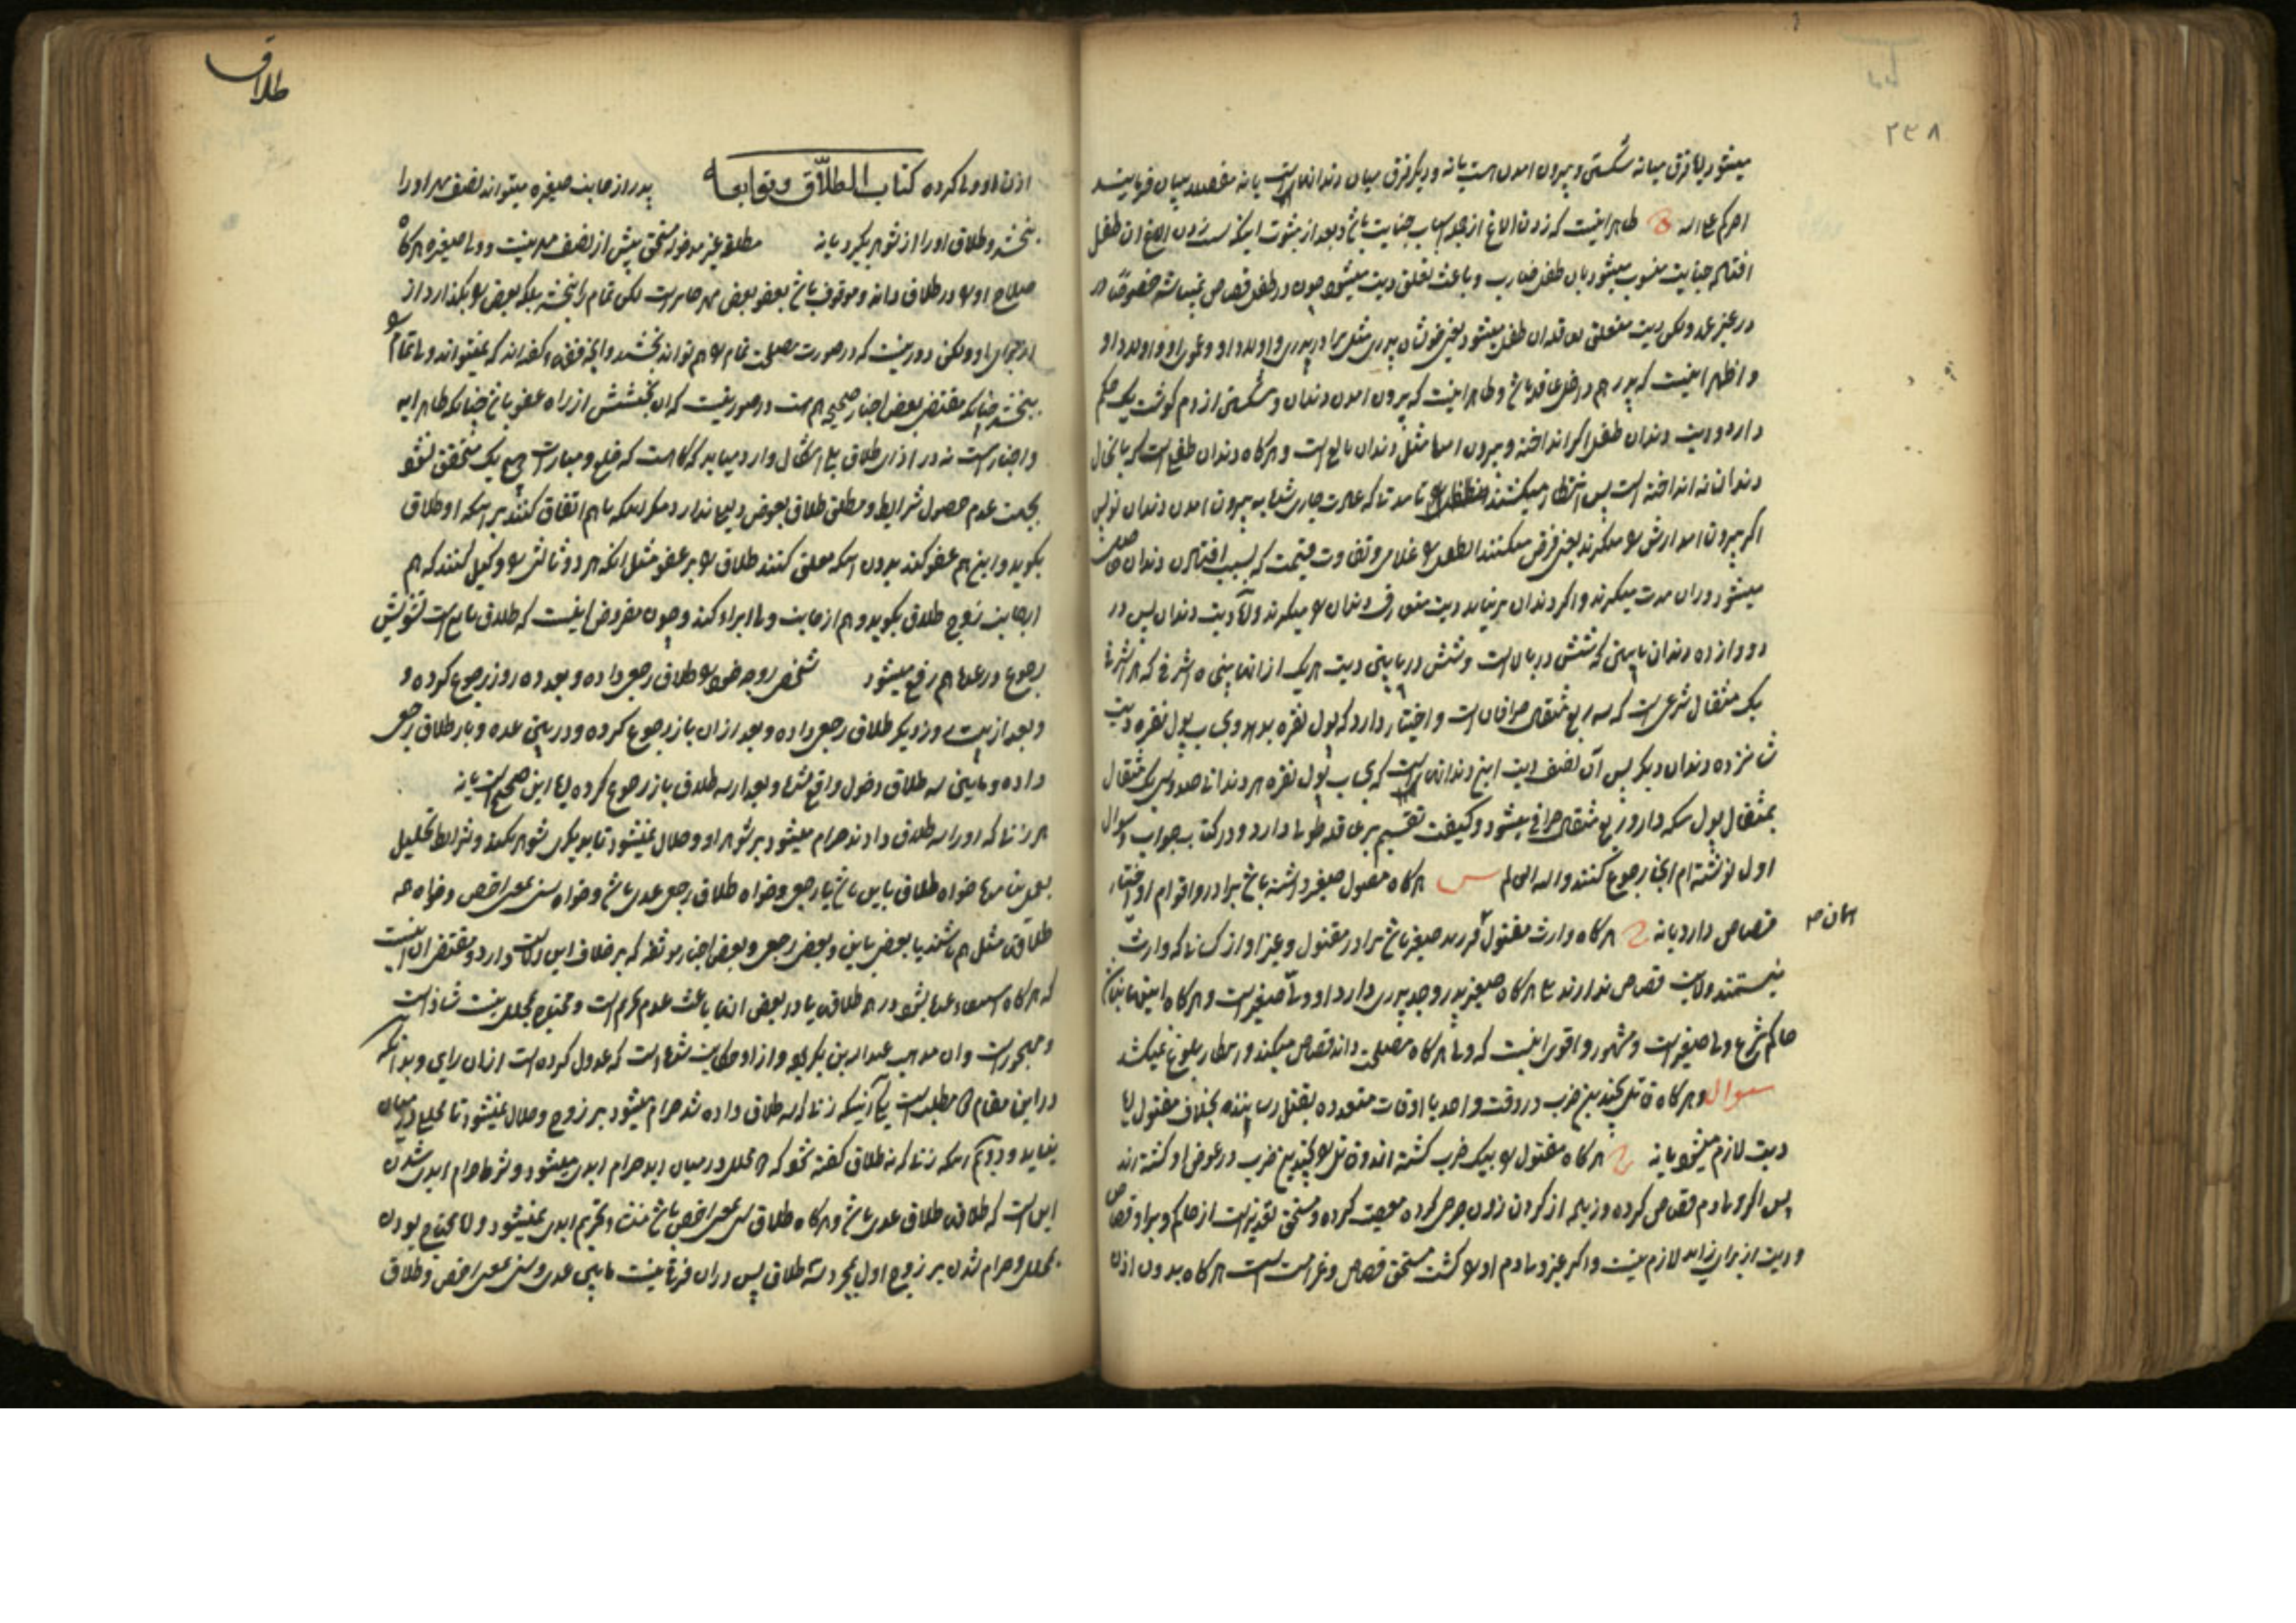 ۲۳۸
میشود یا فرق میانه شکستن و بیرون امدن هست یا نه و دیگر فرق میان دندانها هست یا نه مفصلا بیان فرمایند
اجرکم علی الله ج ظاهر اینست که زدن الاغ از جمله اسباب جنایت باشد و بعد از ثبوت اینکه زدن الاغ ان طفل
جنایت منسوب میشود بان طفل ضارب و باعث تعلق دیت میشود چون در طفل قصاص نمیباشد خصوصا در
در غیر عمد ولکن دیت متعلق بعاقله ان طفل میشود یعنی خویشان پدری مثل برادر پدری و اولاد او و عموی او و اولاد او
و اظهر اینست که پدر هم داخل عاقله باشد و ظاهر اینست که بیرون امدن دندان و شکستن از دم گوشت یک حکم
دارد و دیت دندان طفل اگر انداخته و بیرون امده مثل دندان بالغ است و هرگاه دندان طفلی است که تا بحال
دندان نه انداخته است پس انتظار میکشند تا مدتی که عادت جاری شده به بیرون امدن دندان نو پس
اگر بیرون امد ارش میگیرند یعنی فرض میکنند طفل را غلامی و تفاوت قیمت که بسبب افتادن دندان حاصل
میشود در ان مدت میگیرند و اگر دندان بر نیاید دیت متعارف دندان را میگیرند و اما دیت دندان پس در
دوازده دندان پیش که شش در بالاست و شش در پایین دیت هر یک از انها پنجاه اشرفی که هر اشرفی
یک مثقال شرعی است که سه ربع مثقال صرافان است و اختیار دارد که پول نقره بدهد و بحساب پول نقره دیت
شانزده دندان دیگر پس آن نصف دیت این دندانها است که بحساب پول نقره هر دندانی صد و سی یک مثقال
بمثقال پول سکه دار و ربع مثقال صرافی میشود و کیفیت تقسیم بر عاقله طولی دارد و در کتاب جواب و سوال
اول نوشته‌ام انجا رجوع کنند والله العالم س هرگاه مقتول صغیر داشته باشد برادر و اقوام او اختیار
قصاص دارد یا نه ج هرگاه وارث مقتول فرزند صغیر باشد برادر مقتول و غیر او از کسانی که وارث
نیستند ولایت قصاص ندارند بلی هرگاه صغیر پدر و جد پدری دارد او ولی صغیر است و هرگاه اینها نباشند
حاکم شرع ولی صغیر است و مشهور و اقوی اینست که ولی هرگاه مصلحت داند قصاص میکند و انتظار بلوغ نمیکشد
سوال و هرگاه قاتل بچندین ضرب در وقت واحد یا اوقات متعدده بقتل رسانند بخلاف مقتول ایا
دیت لازم میشود یا نه ج هرگاه مقتول را بیک ضرب کشته اند و قاتل را بچندین ضرب در عوض او کشته اند
پس اگر ولی دم قصاص کرده و زیاده از گردن زدن جرحی کرده معصیت کرده و مستحق تعزیر است از حاکم و بر او قصاص
و دیت از برای زاید لازم نیست و اگر غیر ولی دم او را کشت مستحق قصاص و غرامت است هرگاه بدون اذن
طلاق
اذن او ولی کرده کتاب الطلاق و توابعه پدر از جانب صغیره میتواند نصف مهر او را
ببخشد و طلاق او را از شوهر بگیرد یا نه مطلقه غیر مدخوله مستحق بیش از نصف مهر نیست و ولی صغیره هرگاه
صلاح او را در طلاق داند و موقوف باشد بعفو بعض مهر جایز است لکن تمام را نبخشد بلکه بعض را بگذارد از
از برای او ولکن دور نیست که در صورت مصلحت تمام را هم تواند بخشید و انچه فقها گفته اند که نمیتواند ولی تمام را
ببخشد چنانکه مقتضی بعض اخبار صحیحه هم هست در صورتیست که ان بخشش از راه عفو باشد چنانکه ظاهر ایه
و اخبار است نه در ازای طلاق بلی اشکال وارد میاید که گاه است که خلع و مبارات هیچ یک متحقق نشود
بجهت عدم حصول شرایط و مطلق طلاق بعوض دلیلی ندارد مگر اینکه باهم اتفاق کنند بر اینکه او طلاق
بگوید و این هم عفو کند بدون اینکه معلق کنند طلاق را بر عفو مثل انکه هر دو ثالثی را وکیل کنند که هم
از جانب زوج طلاق بگوید و هم از جانب ولی ابراء کند و چون مفروض اینست که طلاق باین است تشویش
رجوع در عده هم رفع میشود شخصی زوجه خود را طلاق رجعی داده و بعد ده روز رجوع کرده و
و بعد از بیست روز دیگر طلاق رجعی داده و بعد از ان باز رجوع کرده و در بین عده و باز طلاق رجعی
داده و مابین سه طلاق دخول واقع نشده و بعد از سه طلاق باز رجوع کرده ایا این صحیح است یا نه
هر زنی که او را سه طلاق دادند حرام میشود بر شوهر او و حلال نمیشود تا بدیگری شوهر نکند و شرایط تحلیل
بعمل نیاید خواه طلاق باین باشد یا رجعی و خواه طلاق رجعی عدی باشد و خواه سنی بمعنی اخص و خواه همه
طلاقها مثل هم باشند یا بعضی باین و بعضی رجعی و بعض اخبار موثقه که بر خلاف این دلالت دارد و مقتضی ان اینست
که هرگاه استیفاء عده بشود در هر طلاق یا در بعض انها باعث عدم تحریم است و محتاج بمحلل نیست شاذ است
و مهجور است و ان مذهب عبدالله بن بکیر بود و از او حکایت شده است که عدول کرده است از ان رای و بدانکه
در این مقام دو مطلب است یکی آنکه زنی که سه طلاق داده شد حرام میشود بر زوج و حلال نمیشود تا محلل در میان
نیاید و دویم اینکه زنی که نه طلاق گفته شود که دو محلل در میان اید حرام ابدی میشود و شرط حرام ابدی شدن
این است که طلاق طلاق عدی باشد و هرگاه طلاق سنی بمعنی اخص باشد منشاء تحریم ابدی نمیشود و اما محتاج بودن
بمحلل و حرام شدن بر زوج اول بمجرد سه طلاق پس در ان فرقی نیست مابین عدی و سنی بمعنی اخص و طلاق